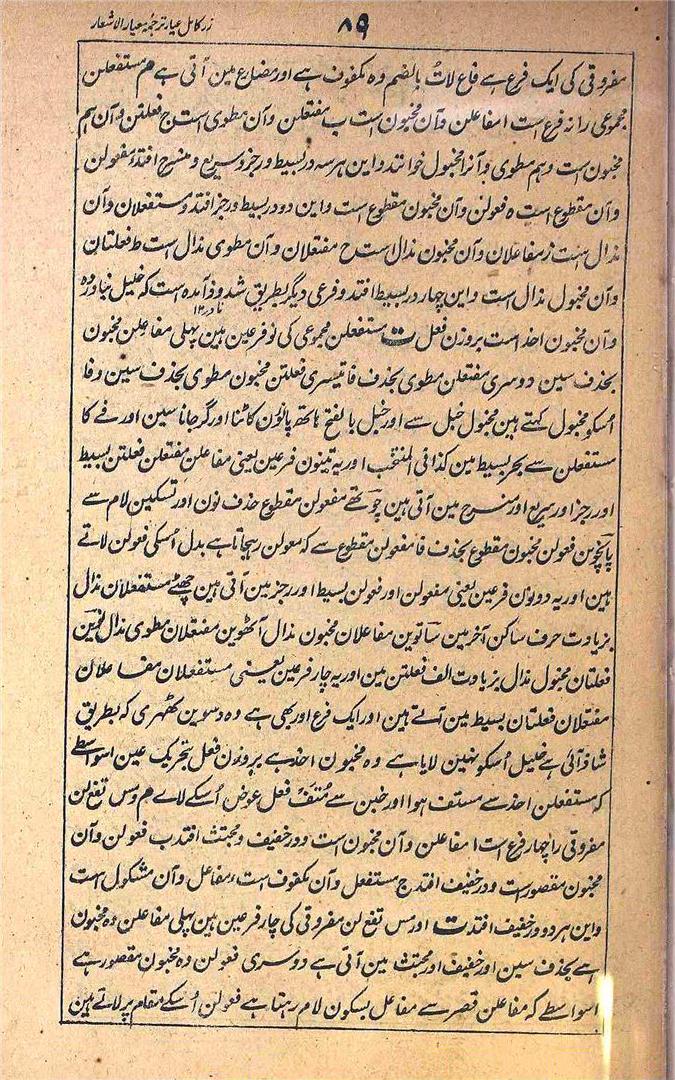 زر کامل عیار ترجمہ معیار الاشعار
۸۹
مفروقی کی ایک فرع ہے فاع لاتُ بالضم وہ مکفوف ہے اور مضارع مین آتی ہے هم مستفعلن
مجموعی را نہ فرع است ا مفاعلن وآن مخبون است ب مفتعلن وآن مطوی است ج فعلتن وآن ہم
مخبون است وہم مطوی وآنرا مخبول خوانند واین ہر سہ در بسیط ورجز وسریع و منسرح افتد ء مفعولن
وآن مقطوع است ہ فعولن وآن مخبون مقطوع است واین دو در بسیط ورجز افتد و مستفعلان وآن
مذال است ز مفاعلان وآن مخبون مذال است ح مفتعلان وآن مطوی مذال است ط فعلتان
وآن مخبول مذال است واین چہار در بسیط افتد و فرعی دیگر بطریق شذوذ آمدہ است کہ خلیل نیاوردہ
نادر ۱۲
وآن مخبون احذ است بروزن فعل ت مستفعلن مجموعی کی نو فرعین ہین پہلی مفاعلن مخبون
بحذف سین دوسری مفتعلن مطوی بحذف فا تیسری فعلتن مخبون مطوی بحذف سین وفا
اُسکو مخبول کہتے ہین مخبول خبل سے اور خبل بالفتح ہاتھ پانؤن کاٹنا اور گر جانا سین اور فے کا
مستفعلن سے بحر بسیط مین کذا فی المنتخب اور یہ تینون فرعین یعنی مفاعلن مفتعلن فعلتن بسیط
اور رجز اور سریع اور منسرح مین آتی ہین چوتھے مفعولن مقطوع حذف نون اور تسکین لام سے
پانچوین فعولن مخبون مقطوع بحذف فا مفعولن مقطوع سے کہ معولن رہجاتا ہے بدل اُسکی فعولن لاتے
ہین اور یہ دونون فرعین یعنی مفعولن اور فعولن بسیط اور رجز مین آتی ہین چھٹے مستفعلان مذال
بزیادت حرف ساکن آخر مین ساتوین مفاعلان مخبون مذال آٹھوین مفتعلان مطوی مذال نوین
فعلتان مخبول مذال بزیادت الف فعلتن مین اور یہ چار فرعین یعنی مستفعلان مفاعلان
مفتعلان فعلتان بسیط مین آتے ہین اور ایک فرع اور بھی ہے وہ دسوین ٹھہری کہ بطریق
شاذ آئی ہے خلیل اُسکو نہین لایا ہے وہ مخبون احذ ہے بروزن فعل بتحریک عین اسواسطے
کہ مستفعلن احذ سے مستف ہوا اور خبن سے مُتَفْ فعل عوض اُسکے لاے هم ومس تفع لن
مفروقی را چہار فرع است ا مفاعلن وآن مخبون است و در خفیف و مجتث افتد ب فعولن وآن
مخبون مقصور است و در خفیف افتد ج مستفعل وآن مکفوف است ء مفاعل وآن مشکول است
واین ہر دو در خفیف افتد ت اور مس تفع لن مفروقی کی چار فرعین ہین پہلی مفاعلن وہ مخبون
ہے بحذف سین اور خفیف اور مجتث مین آتی ہے دوسری فعولن وہ مخبون مقصور ہے
اسواسطے کہ مفاعلن قصر سے مفاعل بسکون لام رہتا ہے فعولن اُسکے مقام پر لاتے ہین